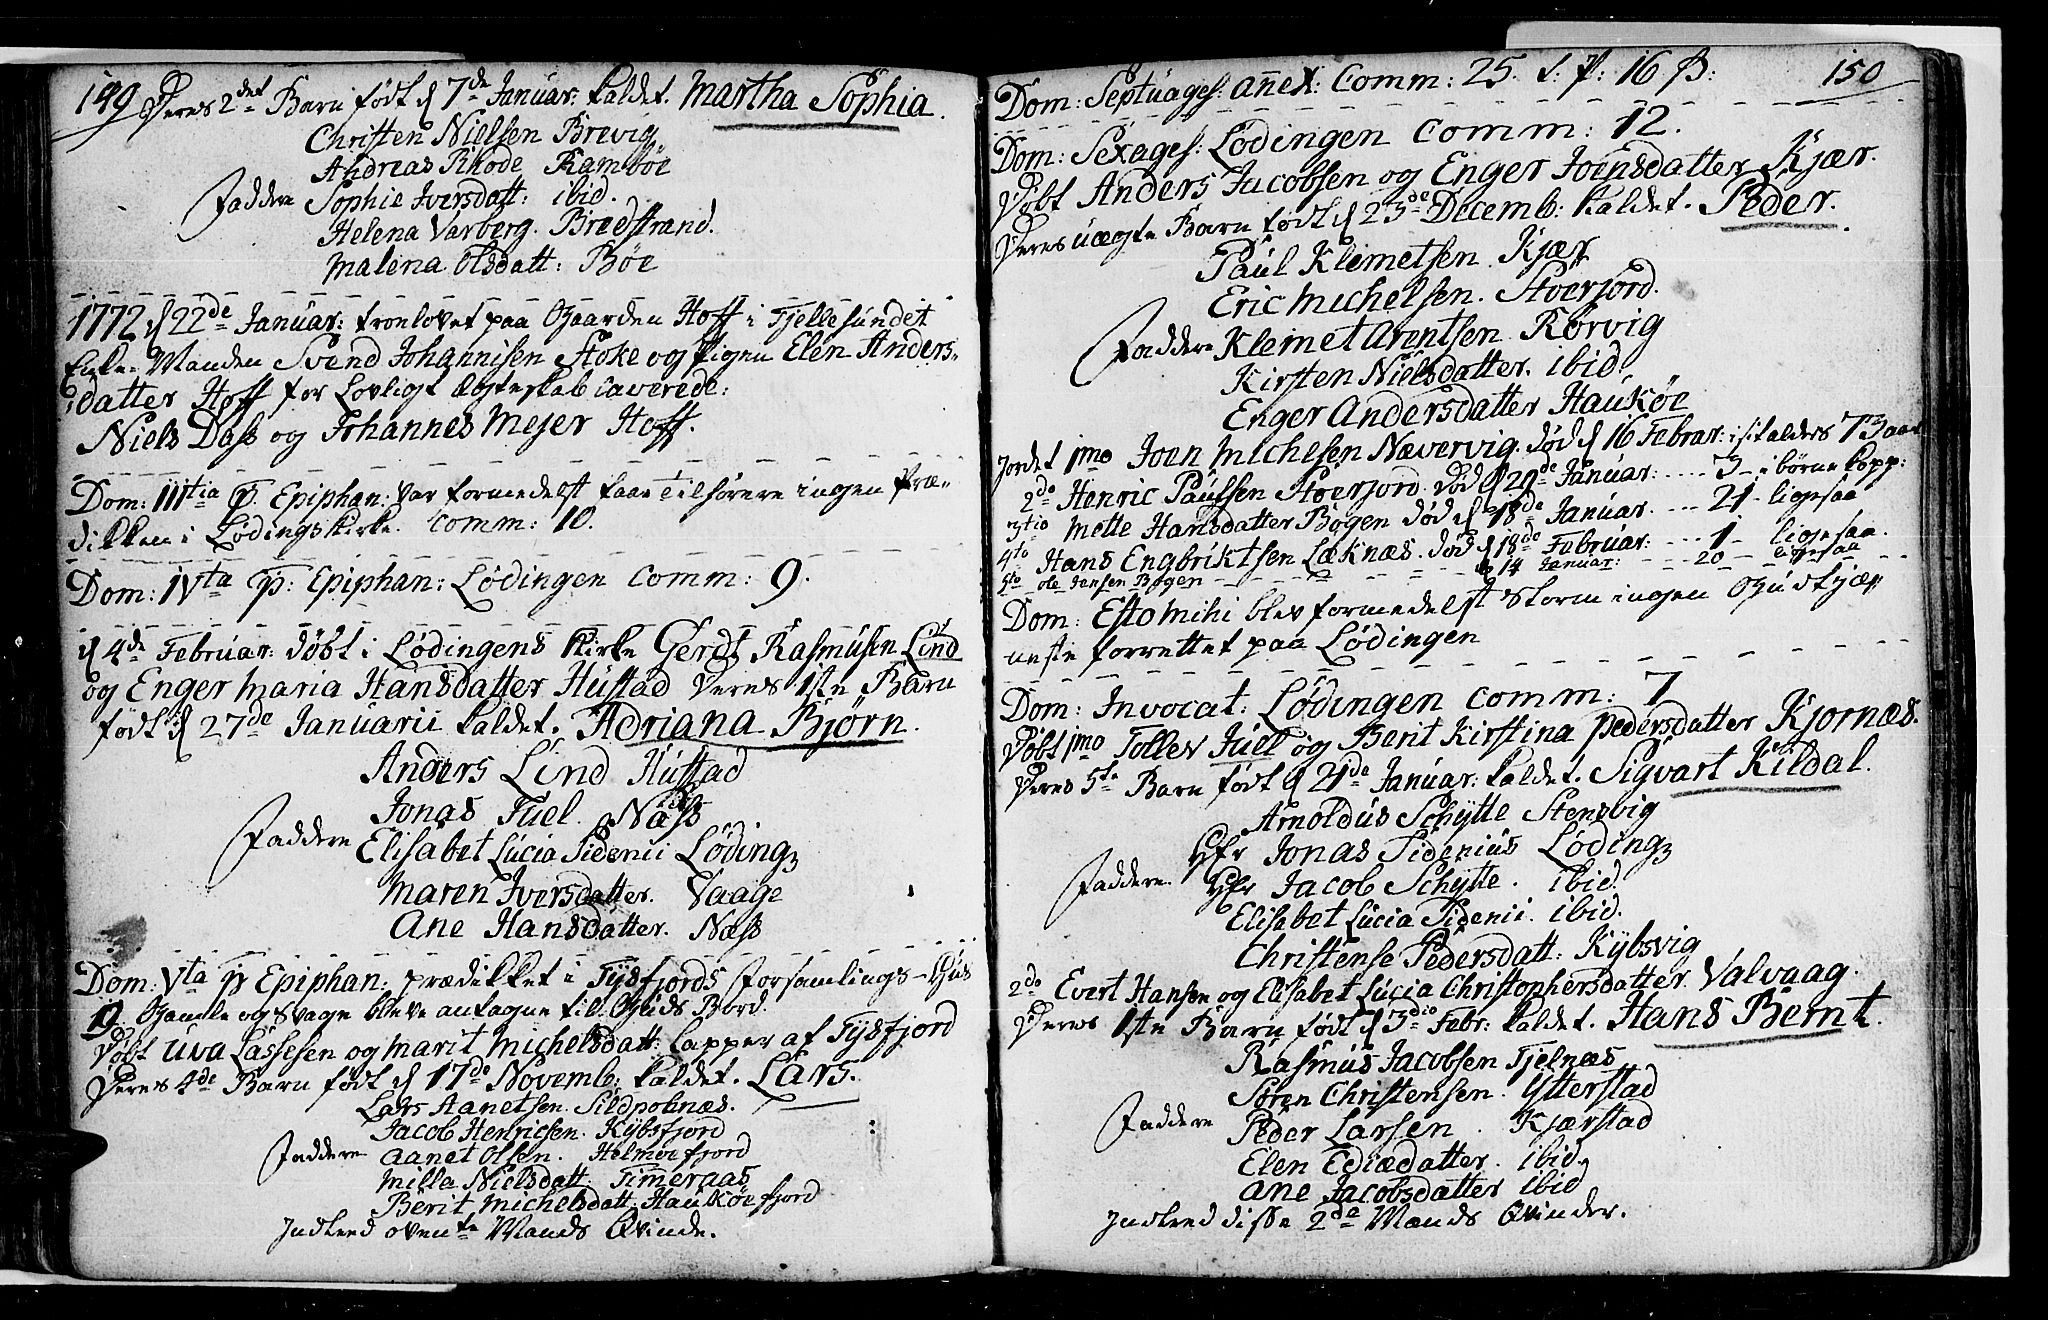 149
Deres 2det Barn født d 7de Januar: kaldet. Martha Sophia.
Christen Nielsen Brevig
Andreas Rhode Rambøe
Faddere Sophie Iversdatt: ibid.
Helena Varberg. Bredstrand.
Malena Olsdatt: Bøe
1772 d 22de Januar: trolovet paa Gaarden Hoff i Tjellesundet
Enke-Manden Svend Johannisen Stoke og Pigen Elen Anders-
datter Hoff for Lovligt Ægteskab caverede:
Niels Dass og Johannes Mejer Hoff.
Dom: IIItia p. Epiphan: var formedelst faae Tilhørere ingen Præ-
diken i Lødings Kirke. Comm: 10.
Dom: IVta p: Epiphan: Lødingen Comm: 9.
d 4de Februar: døbt i Lødingens Kirke Gerdt Rasmusen Lind
og Enger Maria Hansdatter Hustad deres 1ste Barn
født d 27de Januarii kaldet. Adriana Bjørn.
Anders Lind Hustad
Jonas Juel. Næss
Faddere Elisabet Lucia Sidenii Løding
Maren Iversdatter. Vaage
Ane Hansdatter. Næss
Dom: Vta p Epiphan: prædikket i Tysfjords Forsamlings-Huus
19 Gamle og Svage bleve antagne til Guds Bord.
Døbt Uva Lassesen og Marit Michelsdatt: Lapper af Tysfjord
Deres 4de Barn født d 17de Novemb: kaldet. Lars.
Lars Aanetsen. Sildpolnæs.
Jacob Henricsen. Kybsfjord
Faddere Aanet Olsen. Helmerfjord
Milla Nielsdatt. Timeraas
Berit Michelsdatt: Haukøefjord
Indleed oven Mands Qvinde.
150
Dom: Septuages: annex: Comm: 25. t. p: 16 ß:
Dom: Sexages: Lødingen Comm: 12.
Døbt Anders Jacobsen og Enger Joensdatter Kjær.
Deres uægte Barn født d 23de Decemb: kaldet. Peder.
Paul Klemetsen. Kjær
Eric Michelsen. Stverjord.
Faddere Klemet Arentsen. Rørvig
Kirsten Nielsdatter. ibid.
Enger Andersdatter Haukøe
Jordet 1mo Joen Michelsen Nævervig. død d 16 Februar: i sit alders 73 aar
2do Henric Paulsen Stverjord. død d 29de Januar: .... 3 - i børnekopp:
3tio Mette Hansdatter Bogen død d 18de Januar. .... 21 - ligesaa
4to Hans Engbriktsen Læknæs. død d 18de Februar: ... 1 - ligesaa.
5to Ole Jensen Bogen - - - - d 14 Januar: .... 20 - ligesaa
Dom: Estomihi blev formedelst Storm ingen Gudstjæ-
neste forrettet paa Lødingen
Dom: Invocat: Lødingen Comm: 7
Døbt 1mo Tollev Juel og Berit Kirstina Pedersdatter Kjornæs.
Deres 5te Barn født d 21de Januar: kaldet. Sigvart Kildal.
Arnoldus Schytte Stensvig
Hr Jonas Sidenius Løding
Faddere. Hr Jacob Schytte. ibid.
Elisabet Lucia Sidenii. ibid.
Christense Pedersdatt: Kybsvig
2do Evert Hansen og Elisabet Lucia Christophersdatter. Valvaag.
Deres 1ste Barn født d 3dio Febr: kaldet. Hans Bernt.
Rasmus Jacobsen Tjelnæs
Søren Christensen. Ytterstad
Faddere Peder Larsen. Kjærstad
Elen Ediædatter. ibid.
Ane Jacobsdatter ibid
Indleed disse 2de Mænds Qvinder.